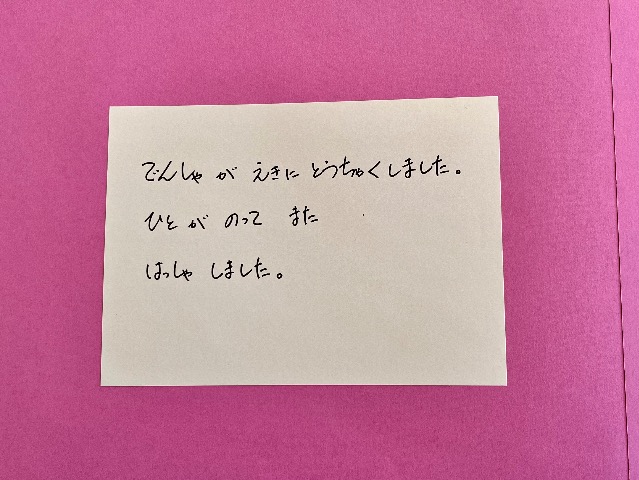 でんしゃ が えきに とうちゃくしました。
ひと が のって また
はっしゃ しました。